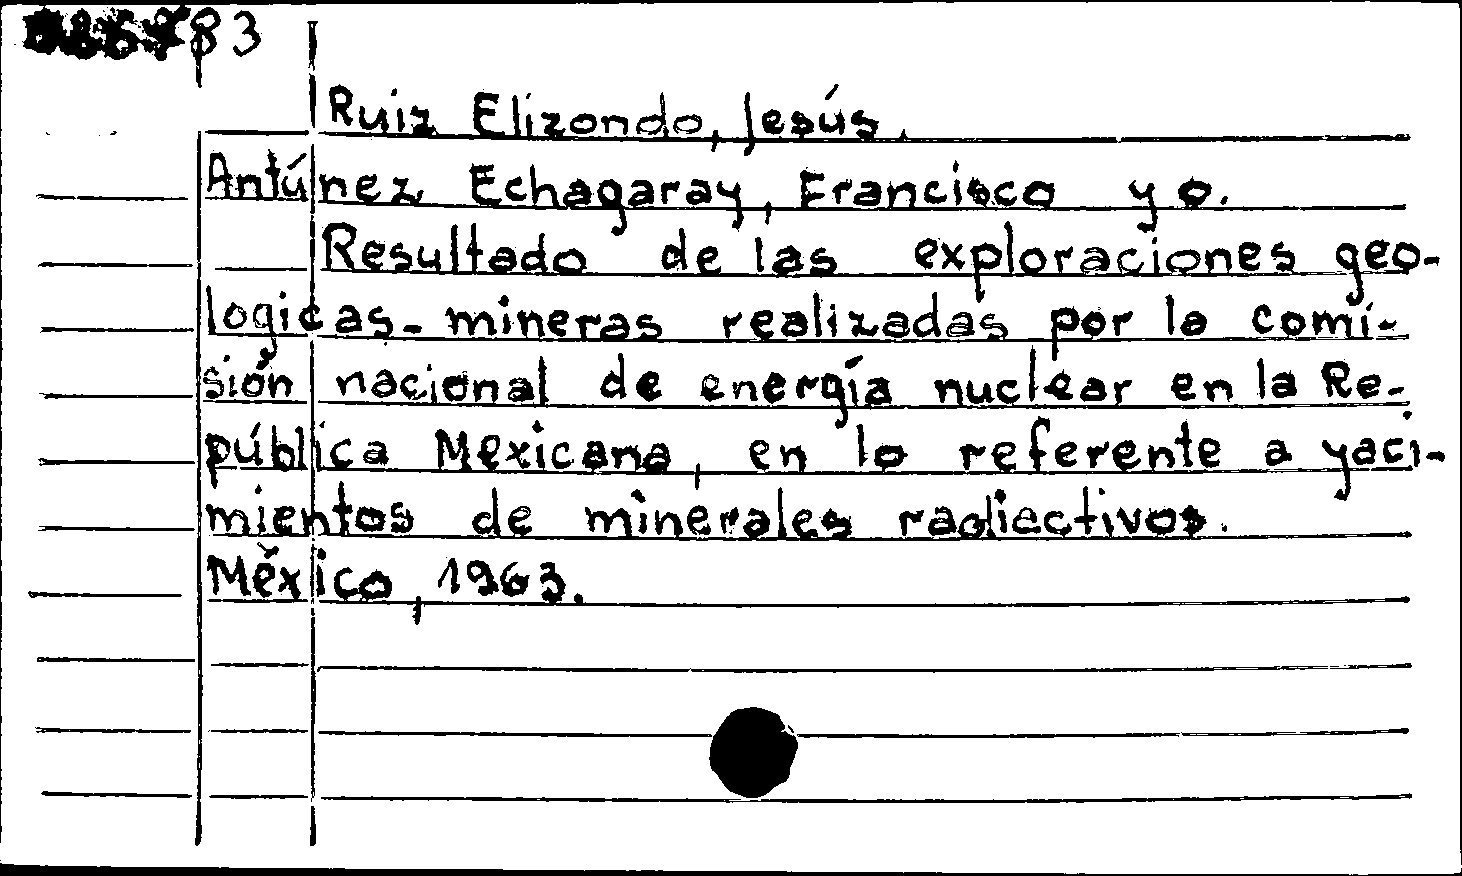 83
Ruiz Elizondo, Jesús.
Antúnez Echagaray, Francisco y o.
Resultado de las exploraciones geo-
logicas-mineras realizadas por la comi-
sión nacional de energía nuclear en la Re-
pública Mexicana, en lo referente a yaci-
mientos de minerales radiactivos.
México, 1963.